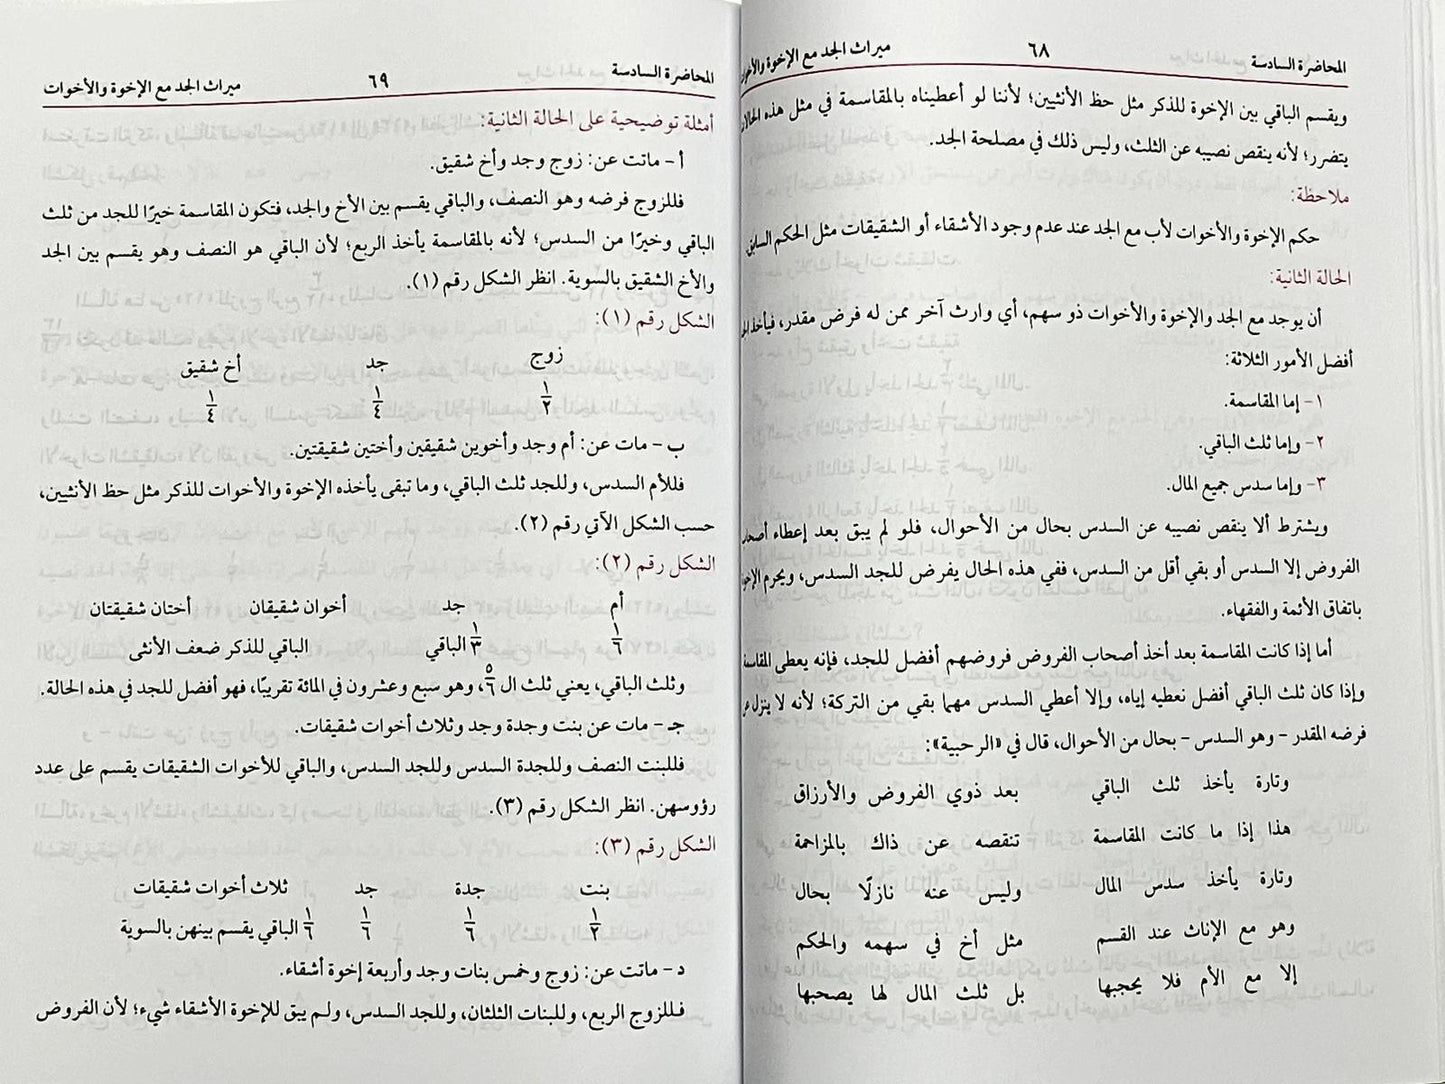 المحاضرة السادسة ٦٨ ميراث الجد مع الإخوة والأخوات
ويقسم الباقي بين الإخوة للذكر مثل حظ الأنثيين؛ لأننا لو أعطيناه بالمقاسمة في مثل هذه الحالات
يتضرر؛ لأنه ينقص نصيبه عن الثلث، وليس ذلك في مصلحة الجد.
ملاحظة:
حكم الإخوة والأخوات لأب مع الجد عند عدم وجود الأشقاء أو الشقيقات مثل الحكم السابق
الحالة الثانية:
أن يوجد مع الجد والإخوة والأخوات ذو سهم، أي وارث آخر ممن له فرض مقدر، فيأخذ
أفضل الأمور الثلاثة:
١- إما المقاسمة.
٢- وإما ثلث الباقي.
٣- وإما سدس جميع المال.
ويشترط ألا ينقص نصيبه عن السدس بحال من الأحوال، فلو لم يبق بعد إعطاء
الفروض إلا السدس أو بقي أقل من السدس، ففي هذه الحال يفرض للجد السدس، ويحرم
باتفاق الأئمة والفقهاء.
أما إذا كانت المقاسمة بعد أخذ أصحاب الفروض فروضهم أفضل للجد، فإنه يعطى المقاسمة
وإذا كان ثلث الباقي أفضل نعطيه إياه، وإلا أعطي السدس مهما بقي من التركة؛ لأنه لا ينزل عن
فرضه المقدر - وهو السدس - بحال من الأحوال، قال في «الرحبية»:
وتارة يأخذ ثلث الباقي بعد ذوي الفروض والأرزاق
هذا إذا ما كانت المقاسمة تنقصه عن ذاك بالمزاحمة
وتارة يأخذ سدس المال وليس عنه نازلًا بحال
وهو مع الإناث عند القسم مثل أخ في سهمه والحكم
إلا مع الأم فلا يحجبها بل ثلث المال لها يصحبها
المحاضرة السادسة ٦٩ ميراث الجد مع الإخوة والأخوات
أمثلة توضيحية على الحالة الثانية:
أ- ماتت عن: زوج وجد وأخ شقيق.
فللزوج فرضه وهو النصف، والباقي يقسم بين الأخ والجد، فتكون المقاسمة خيرًا للجد من ثلث
الباقي وخيرًا من السدس؛ لأنه بالمقاسمة يأخذ الربع؛ لأن الباقي هو النصف وهو يقسم بين الجد
والأخ الشقيق بالسوية. انظر الشكل رقم (١).
الشكل رقم (١):
زوج جد أخ شقيق
١/٢ ١/٤ ١/٤
ب- مات عن: أم وجد وأخوين شقيقين وأختين شقيقتين.
فللأم السدس، وللجد ثلث الباقي، وما تبقى يأخذه الإخوة والأخوات للذكر مثل حظ الأنثيين،
حسب الشكل الآتي رقم (٢).
الشكل رقم (٢):
أم جد أخوان شقيقان أختان شقيقتان
١/٦ ١/٣ الباقي الباقي للذكر ضعف الأنثى
وثلث الباقي، يعني ثلث ال ٥/٦، وهو سبع وعشرون في المائة تقريبًا، فهو أفضل للجد في هذه الحالة.
جـ- مات عن بنت وجدة وجد وثلاث أخوات شقيقات.
فللبنت النصف وللجدة السدس وللجد السدس، والباقي للأخوات الشقيقات يقسم على عدد
رؤوسهن. انظر الشكل رقم (٣).
الشكل رقم (٣):
بنت جدة جد ثلاث أخوات شقيقات
١/٢ ١/٦ ١/٦ ١/٦ الباقي يقسم بينهن بالسوية
د- ماتت عن: زوج وخمس بنات وجد وأربعة إخوة أشقاء.
فللزوج الربع، وللبنات الثلثان، وللجد السدس، ولم يبق للإخوة الأشقاء شيء؛ لأن الفروض